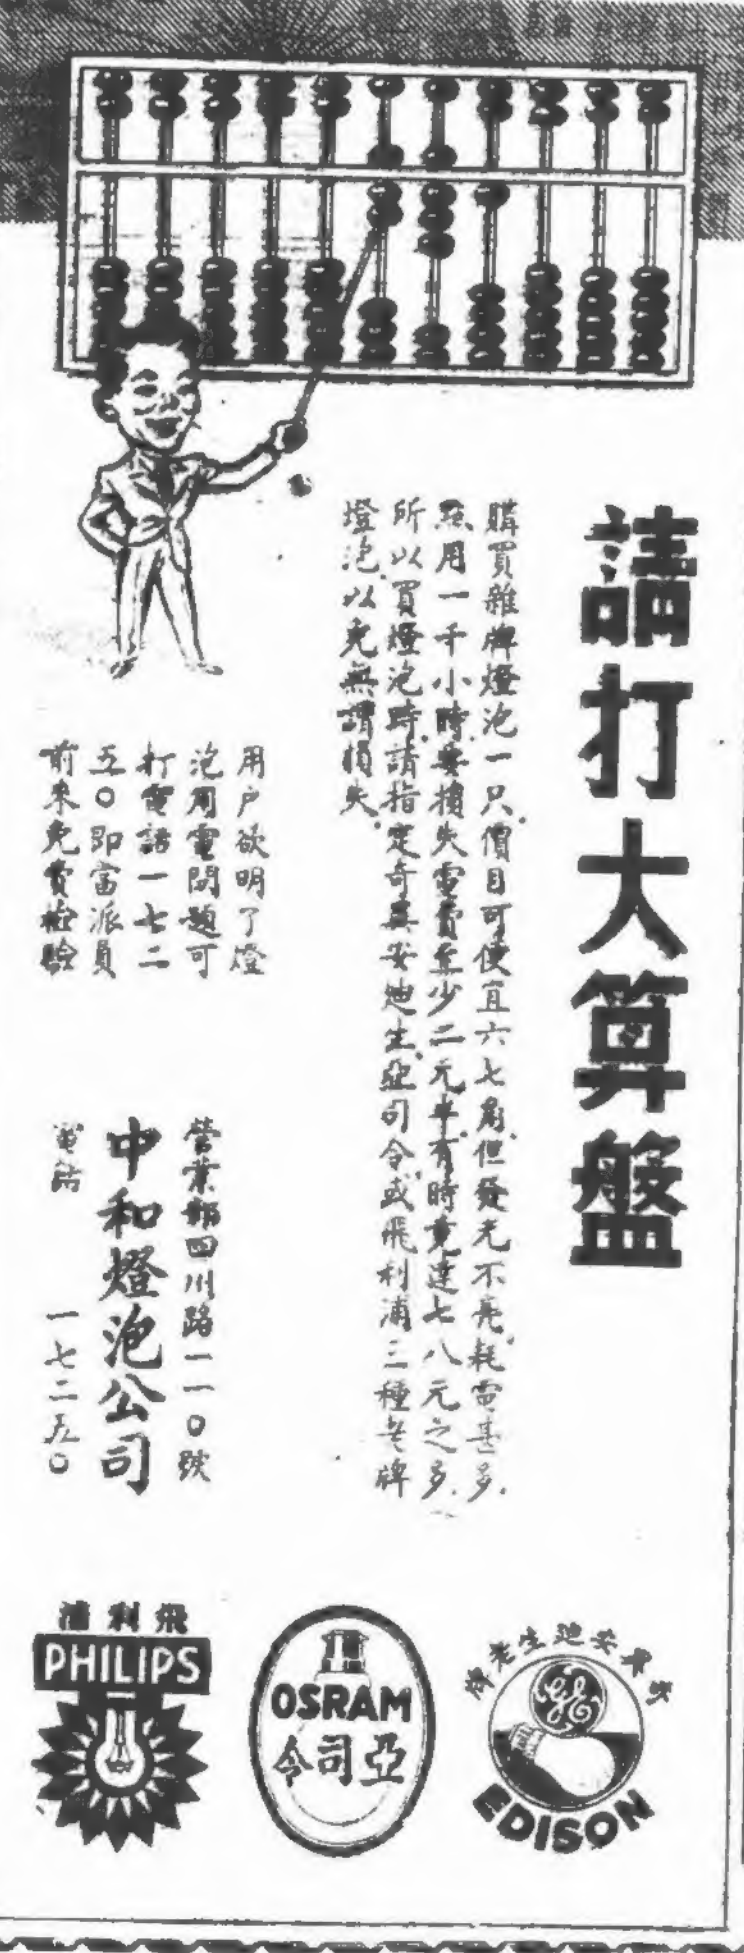 請打大算盤
購買雜牌燈泡一只,價目可便宜六七角,但發光不亮,耗電甚多,
點用一千小時,要損失電費至少二元半,有時竟達七八元之多,
所以買燈泡時,請指定奇異安迪生,亞司令,或飛利浦三種老牌
燈泡,以免無謂損失,
用户欲明了燈
泡用電問題可
打電話一七二
五〇即當派員
前來免費檢驗
營業部四川路一一〇號
中和燈泡公司
電話 一七二五〇
奇異安迪生老牌
GE
EDISON
OSRAM
亞司令
飛利浦
PHILIPS